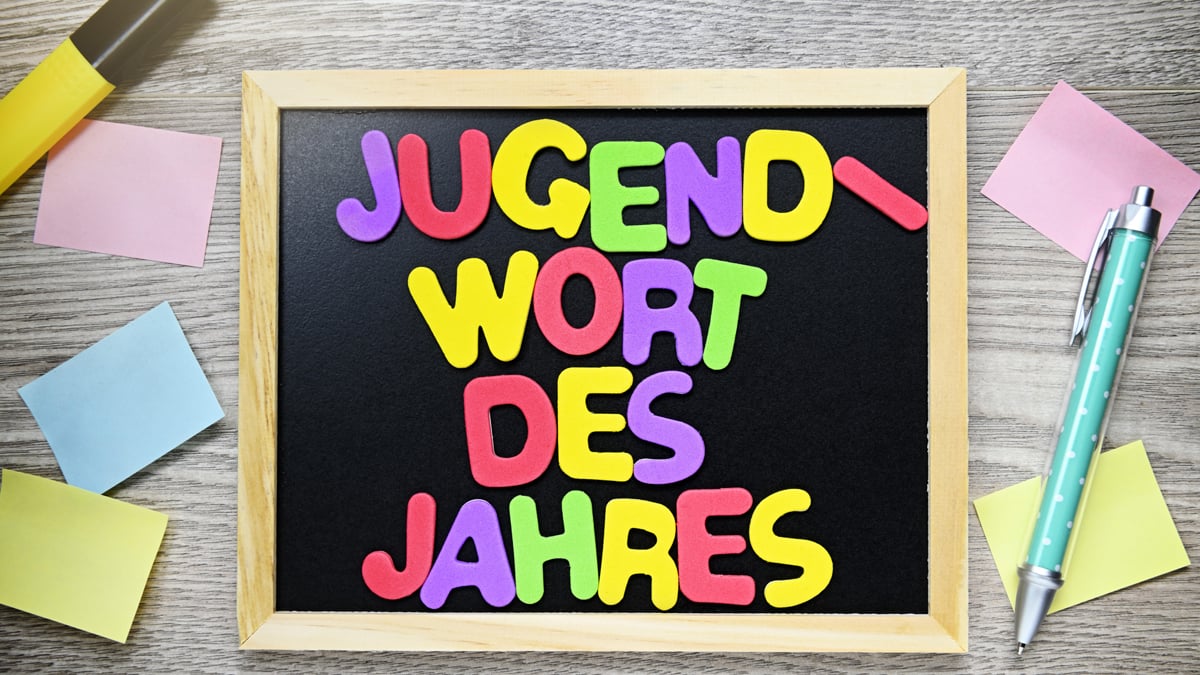 JUGEND-
WORT
DES
JAHRES